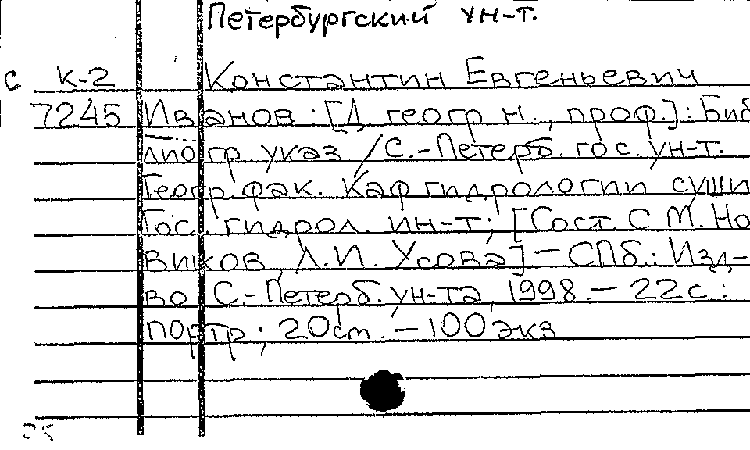 Петербургский ун-т.
С К-2 Константин Евгеньевич
7245 Иванов: [Д. геогр. н., проф.]: Биб
лиогр. указ / С.-Петерб. гос. ун-т.
Геогр. фак. Каф. гидрологии суши
Гос. гидрол. ин-т; [Сост. С. М. Но
виков, Л. И. Усова] – СПб.: Изд-
во С.-Петерб. ун-та, 1998. – 22 с.:
портр.; 20 см. – 100 экз